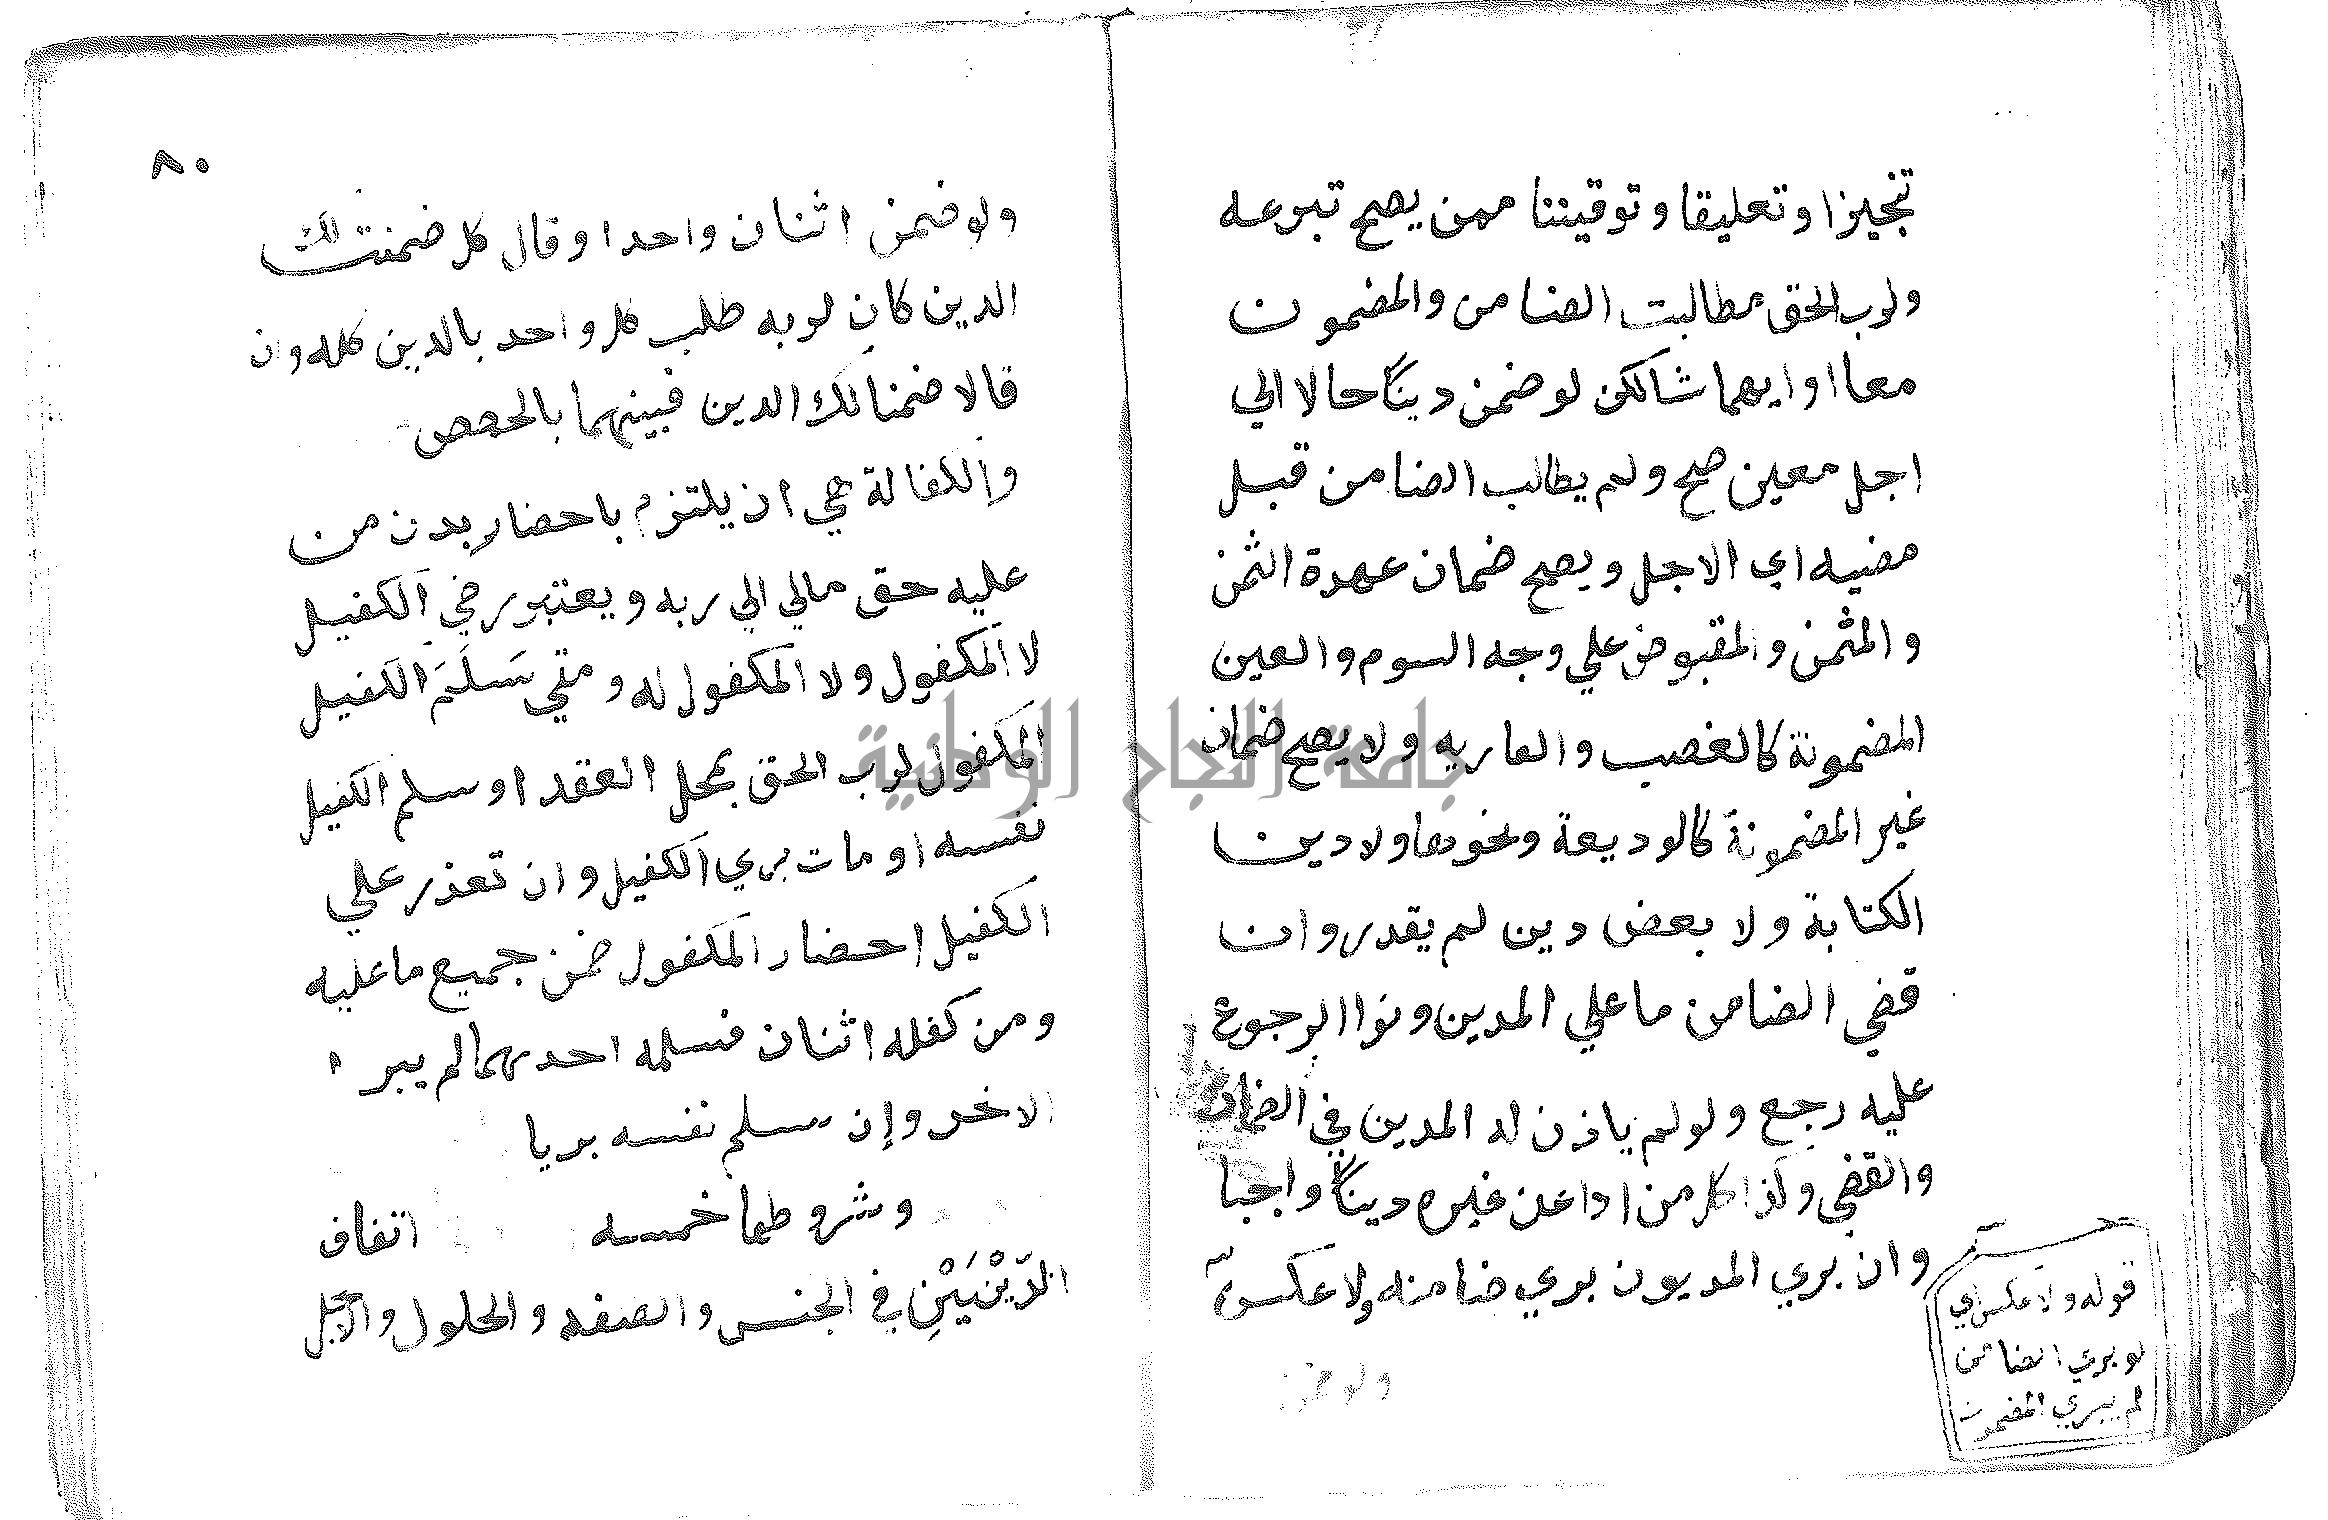 تنجيزا وتعليقا وتوقيتنا ممن يصح تبرعه
ولرب الحق مطالبت الضامن والمضمون
معا او ايهما شا لكن لو ضمن دينًا حالا الي
اجل معين صح ولم يطالب الضامن قبل
مضيه اي الاجل ويصح ضمان عهدة الثمن
والمثمن والمقبوض علي وجه السوم والعين
المضمونة كالغصب والعاريه ولا يصح ضمان
غير المضمونة كالوديعة ونحوها ولا دين
الكتابة ولا بعض دين لم يقدر وان
قضي الضامن ما علي المدين ونوا الرجوع
عليه رجع ولو لم ياذن له المدين في الضمان
والقضي وكذا كل من ادا عن غيره دينًا واجبا
وان بري المديون بري ضامنه ولا عكس
قوله ولا عكس اي
لو بري الضامن
لم يبري المضمون
ولو ضمن
٨٠
ولو ضمن اثنان واحدا وقال كل ضمنت لك
الدين كان لربه طلب كل واحد بالدين كله وان
قالا ضمنا لك الدين فبينهما بالحصص
والكفالة هي ان يلتزم باحضار بدن من
عليه حق مالي الي ربه ويعتبر رضي الكفيل
لا المكفول ولا المكفول له ومتي سَلَّمَ الكفيل
المكفول لرب الحق بمحل العقد او سلم الكفيل
نفسه او مات بري الكفيل وان تعذر علي
الكفيل احضار المكفول ضمن جميع ما عليه
ومن كفله اثنان فسلمه احدهما لم يبرا
الاخر وإن سلم نفسه بريا
وشروطها خمسه اتفاق
الدّيْنَيْنِ في الجنس والصفه والحلول والاجل
جامعة النجاح الوطنية